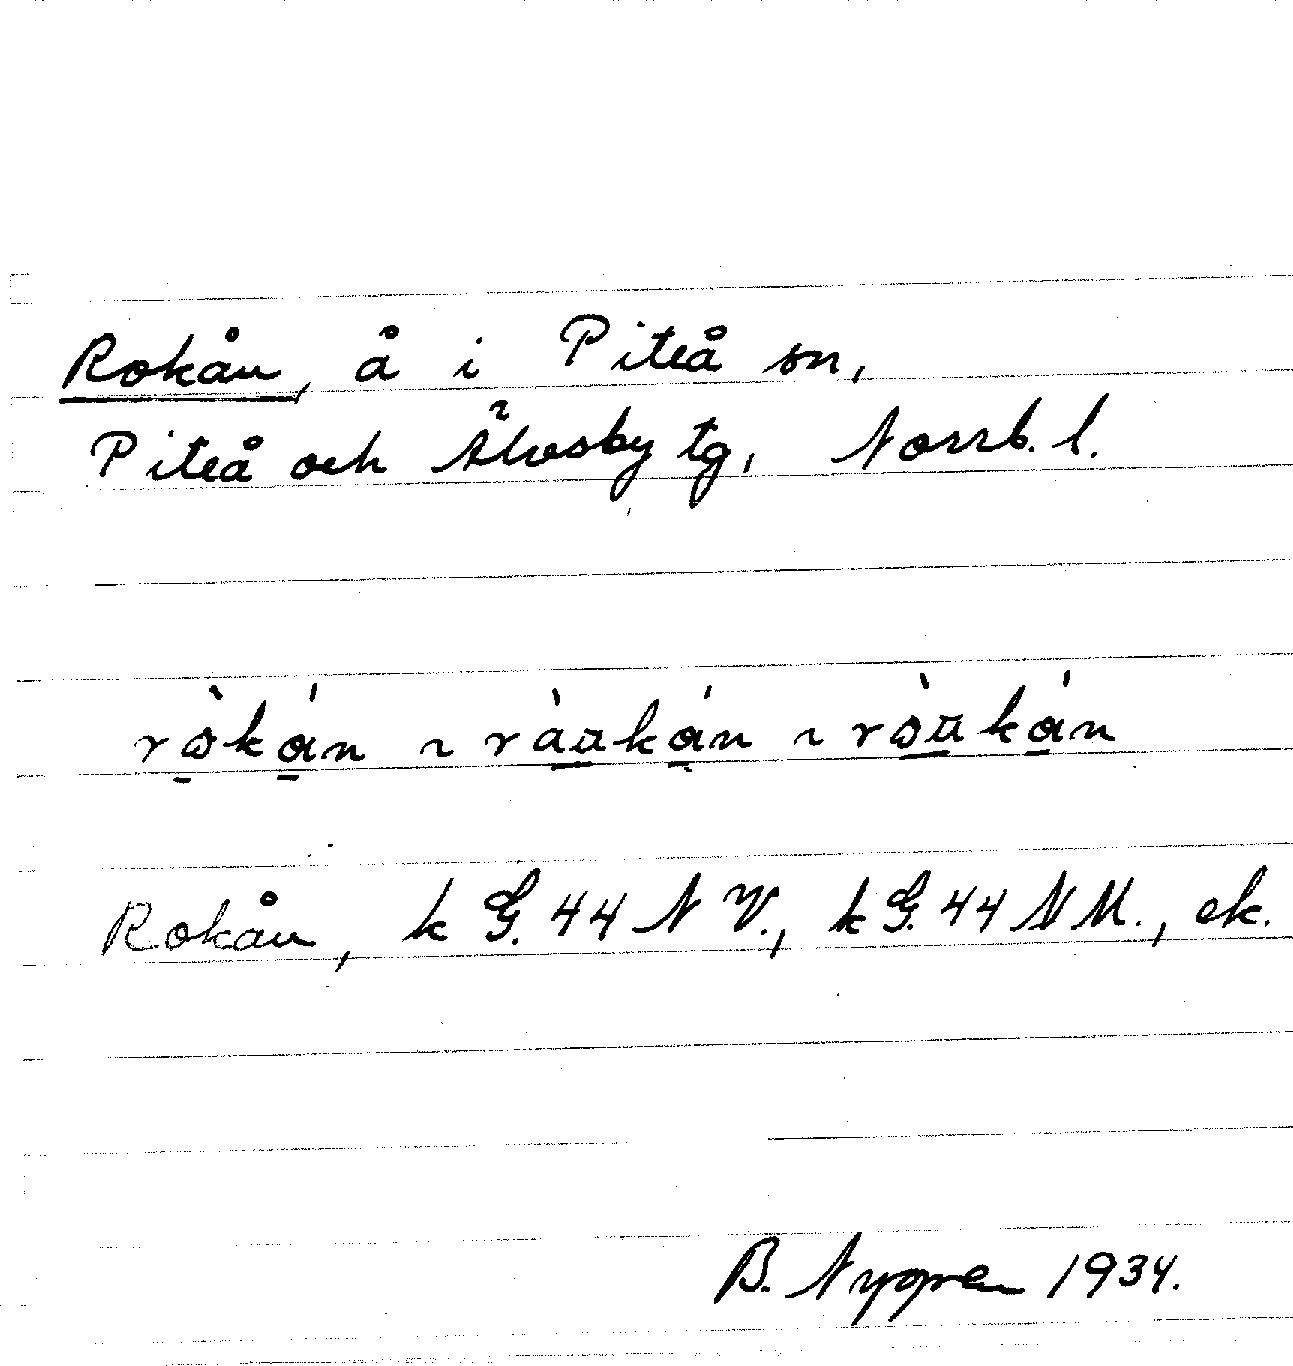 Rokån, å i Piteå sn,
Piteå och Älvsby tg, Norrb. l.
rò̱ká̱n ~ ràu̱ká̱n ~ ròu̱ká̱n
Rokån, k G. 44 N V., k G. 44 N M., ek.
B. Nygren 1934.